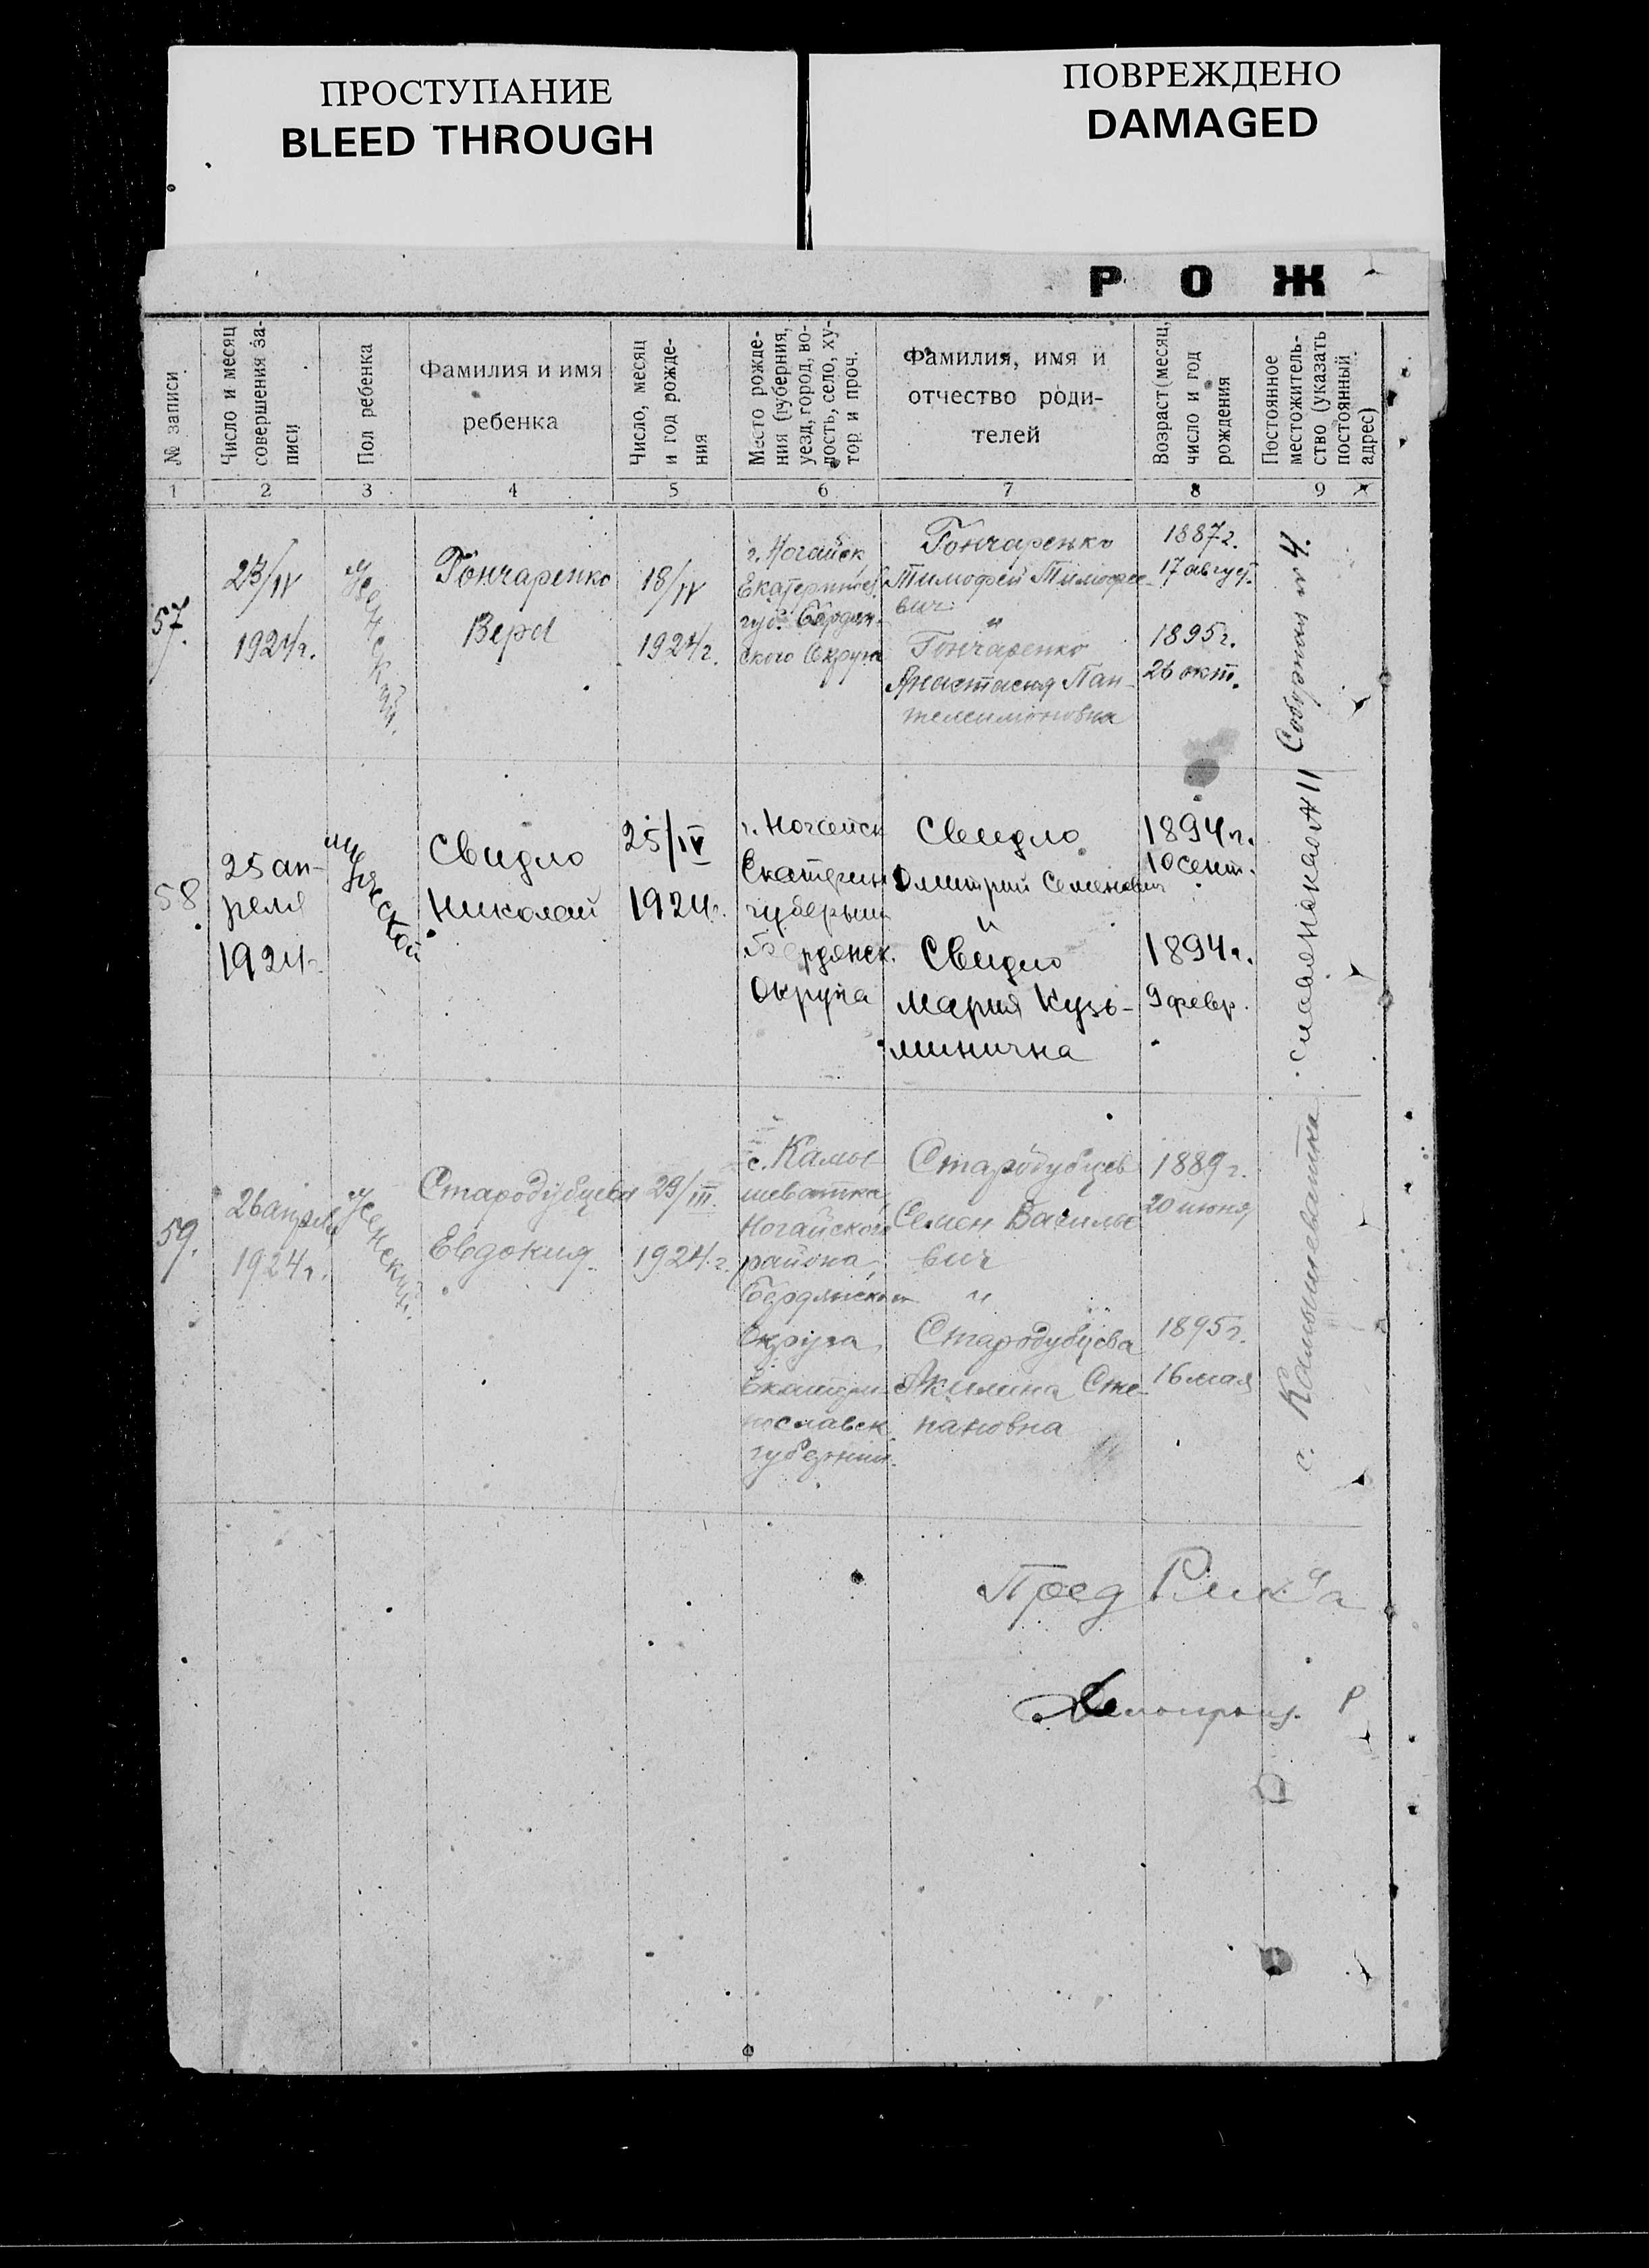 ПРОСТУПАНИЕ
BLEED THROUGH
ПОВРЕЖДЕНО
DAMAGED
РОЖ
№ записи
Число и месяц
совершения за-
писи
Пол ребенка
Фамилия и имя
ребенка
Число, месяц
и год рожде-
ния
Место рожде-
ния (губерния,
уезд, город, во-
лость, село, ху-
тор и проч.
Фамилия, имя и
отчество роди-
телей
Возраст (месяц,
число и год
рождения
Постоянное
местожитель-
ство (указать
постоянный
адрес)
1 2 3 4 5 6 7 8 9
57.
23/IV
1924г.
Женский.
Гончаренко
Вера
18/IV
1924г.
г. Ногайск
Екатериносл.
губ. Бердян-
ского Округа
Гончаренко
Тимофей Тимофее-
вич
и
Гончаренко
Анастасия Пан-
телеимоновна
1887г.
17 август.
1895г.
26 окт.
Соборная № 4.
58.
25 ап-
реля
1924г.
мужской
Свидло
Николай
25/IV
1924г.
г. Ногайск
Екатерин
губернии
Бердянск.
Округа
Свидло
Дмитрий Семенович
и
Свидло
Мария Кузь-
минична
1894г.
10 сент.
1894г.
9 февр.
Славянская № 11
59.
26 апреля
1924г.
Женский.
Стародубцева
Евдокия
29/III.
1924г.
с. Камы-
шеватка,
Ногайского
района,
Бердянского
Округа
Екатери-
нославск.
губернии.
Стародубцев
Семен Василье-
вич
и
Стародубцева
Акилина Сте-
пановна
1889г.
20 июня
1895г.
16 мая
с. Камышеватка
Пред Рик'а
Делопроиз.